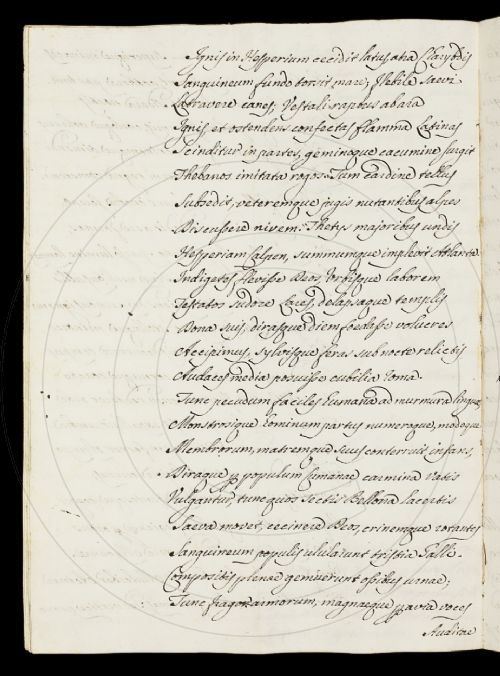 Ignis in Hesperium cecidit latus, atra Charybdis
Sanguineum fundo torsit mare; flebile saevi
Latravere canes; Vestali raptus ab ara
Ignis, et ostendens confectas flamma Latinas
Scinditur in partes, geminoque cacumine surgit
Thebanos imitata rogos. Tum cardine tellus
Subsedit, veteremque jugis nutantibus alpes
Discussere nivem. Thetys majoribus undis
Hesperiam Calpen, summumque implevit Atlanta.
Indigetes flevisse Deos, Urbisque laborem
Testatos sudore Lares, delapsaque templis
Dona suis, dirasque diem foedasse volucres
Accipimus, sylvisque feras sub nocte relictis
Audaces media posuisse cubilia Roma.
Tunc pecudum faciles humana ad murmura linguae,
Monstrosique hominum partus numeroque, modoque
Membrorum, matremque suus conterruit infans,
Diraque per populum Cumanae carmina vatis
Vulgantur, tunc quos sectis Bellona lacertis
Saeva movet, cecinere Deos, crinemque rotantes
Sanguineum populis ulularunt tristia Galli.
Compositis plenae gemuerunt ossibus urnae;
Tunc fragor armorum, magnaeque per avia voces
Auditae